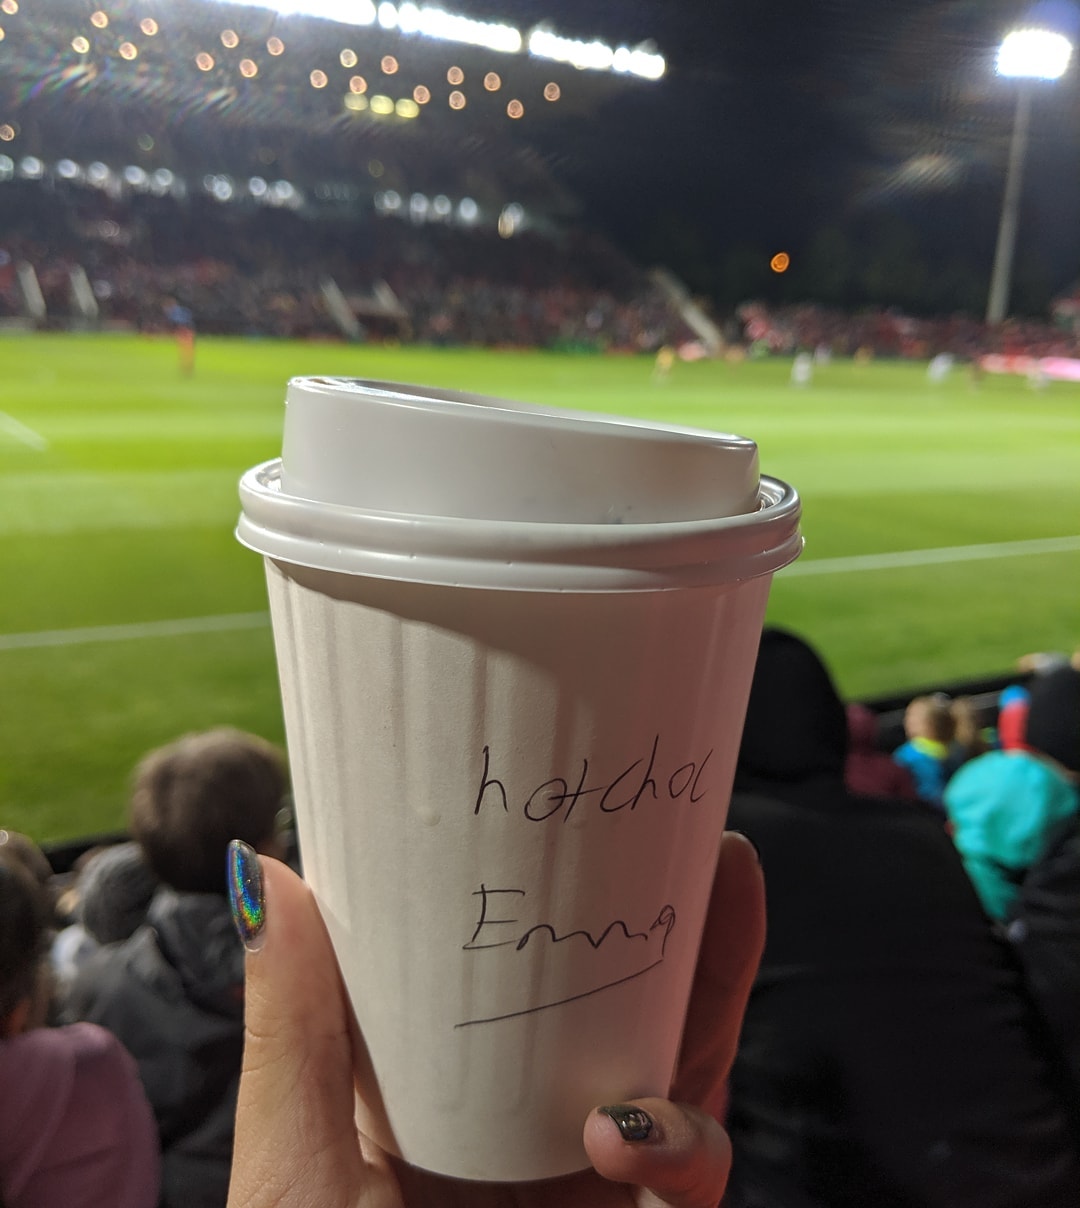 hotchoc
Emma